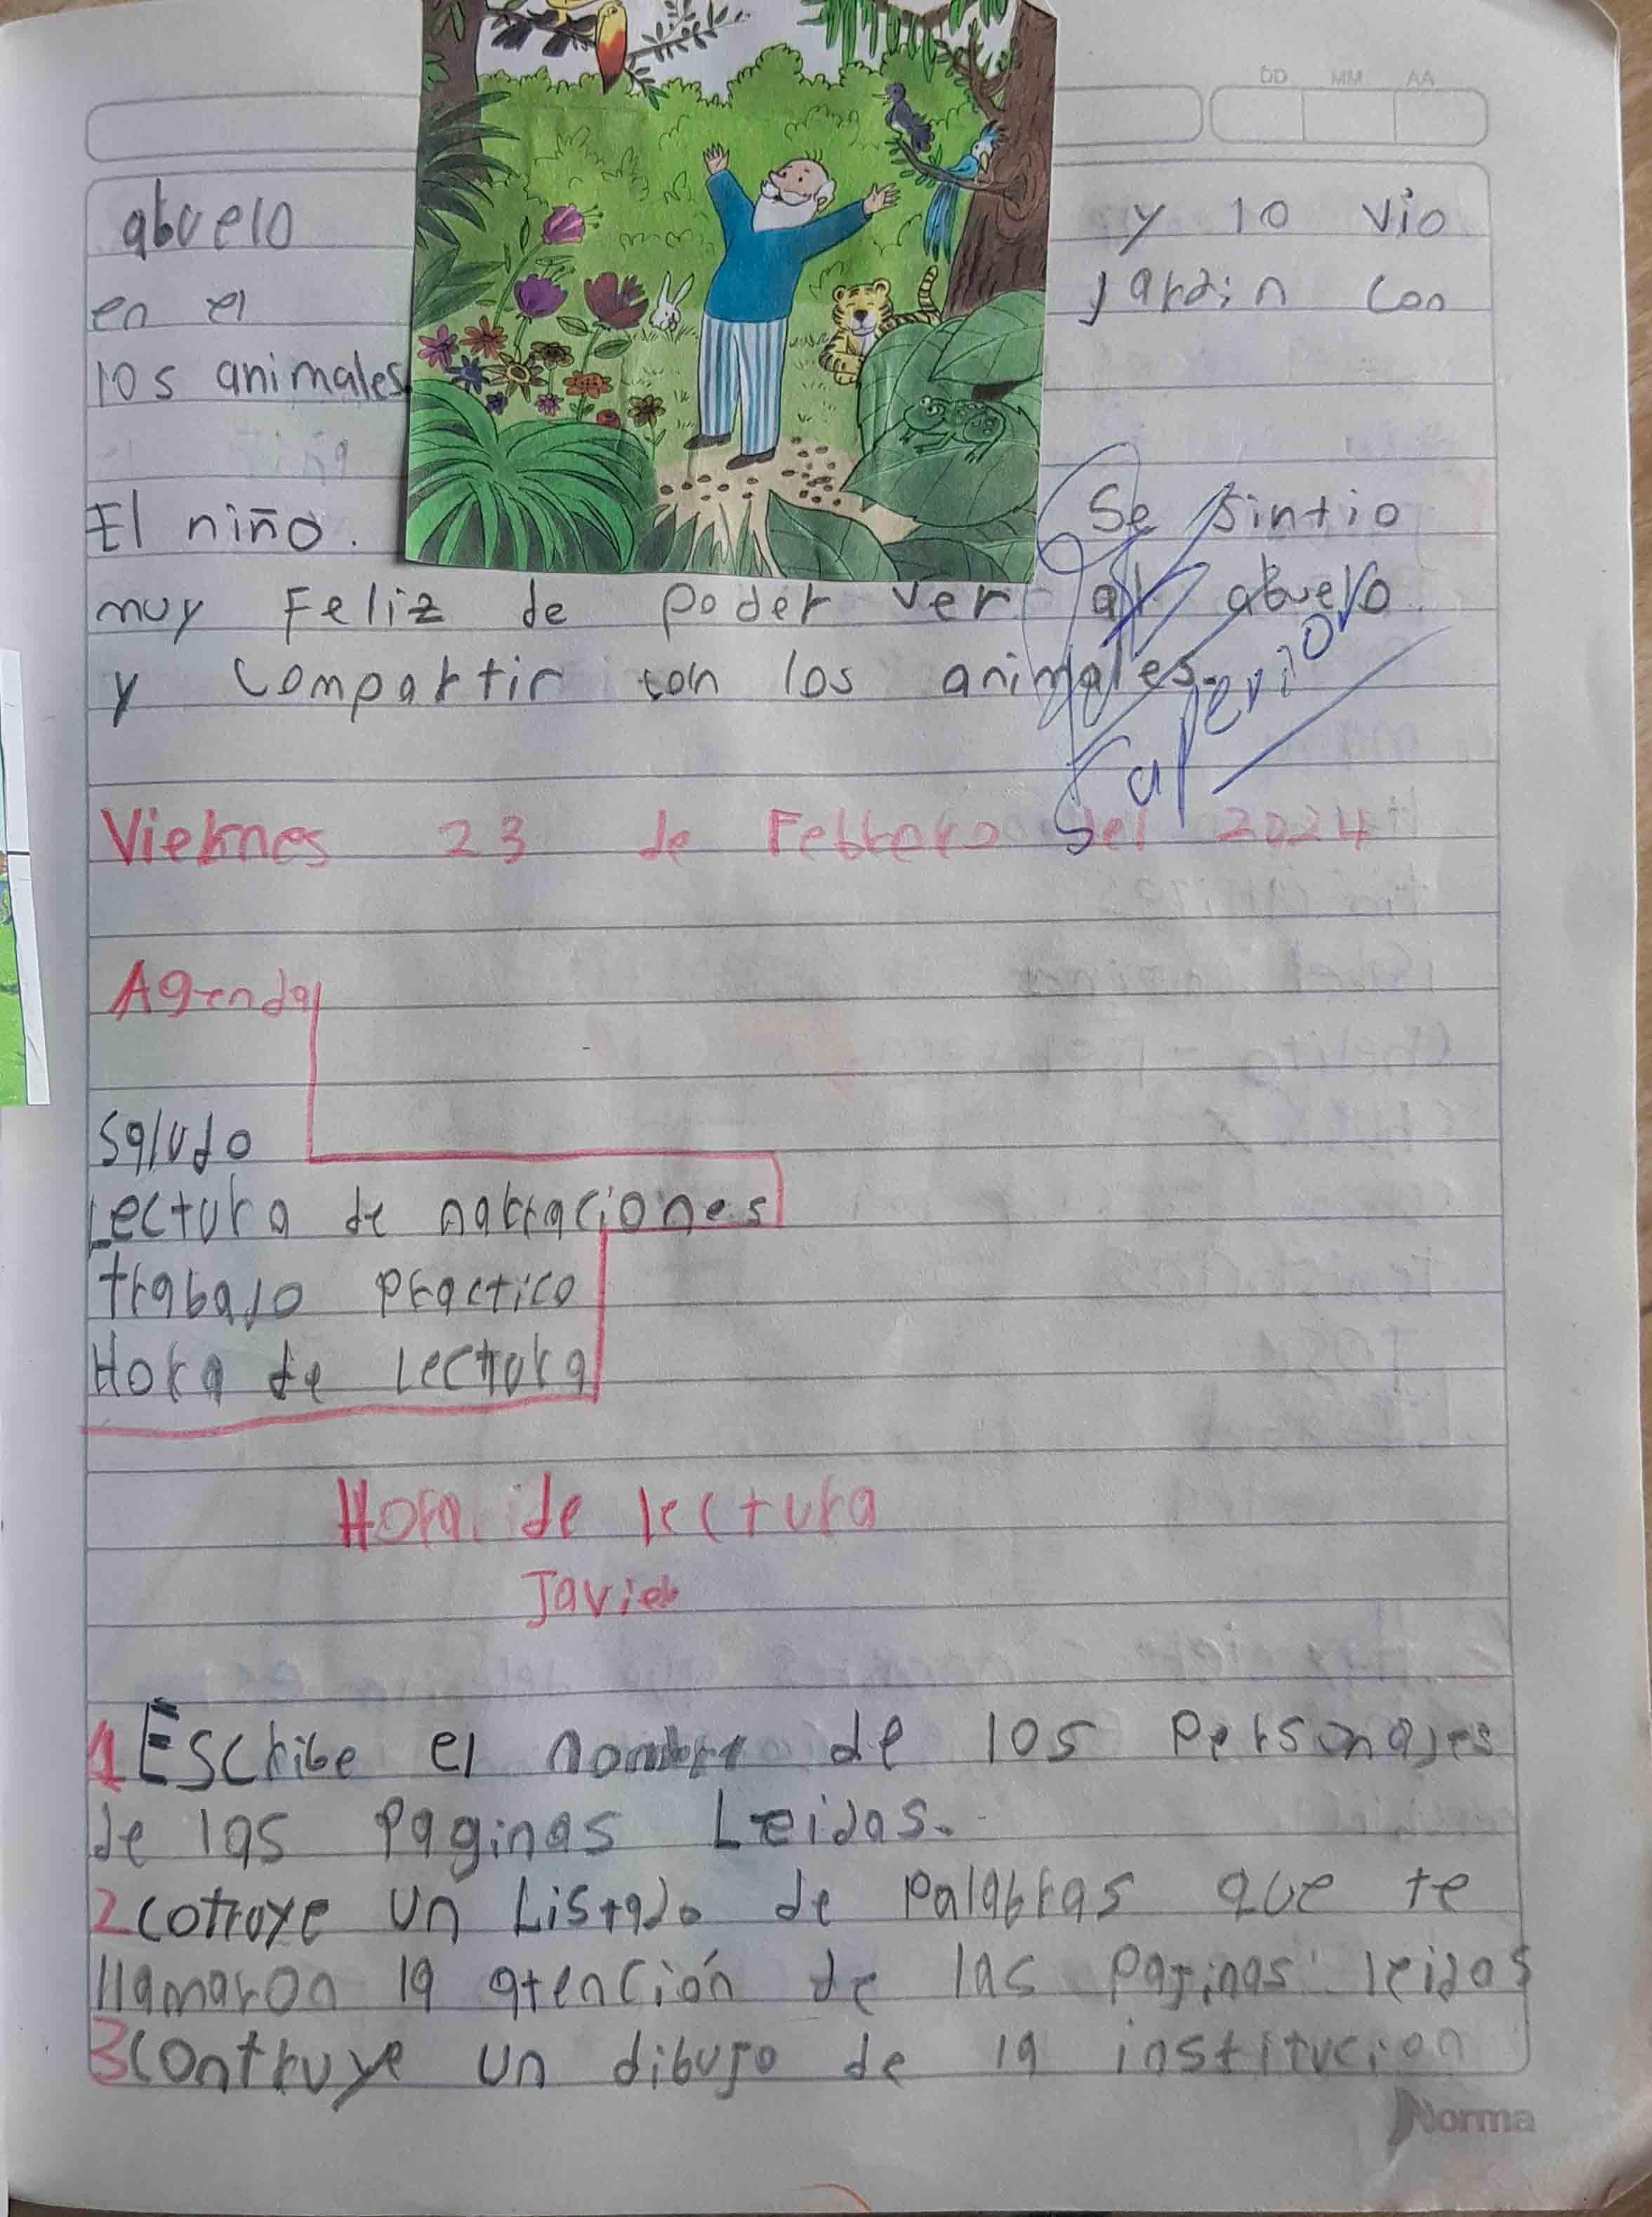 DD MM AA
abuelo y lo vio
en el jardin con
los animales
El niño. Se sintio
muy Feliz de poder ver al abuelo
y compartir con los animales.
Superior
Viernes 23 de Febrero del 2024
Agenda
Saludo
Lectura de narraciones
trabajo practico
Hora de Lectura
Hora de lectura
Javier
1 Escribe el nombre de los Personajes
de las Paginas Leidas.
2 cotruye un Listado de Palabras que te
llamaron la atención de las paginas leidas
3 Contruye un dibujo de la institucion
Norma